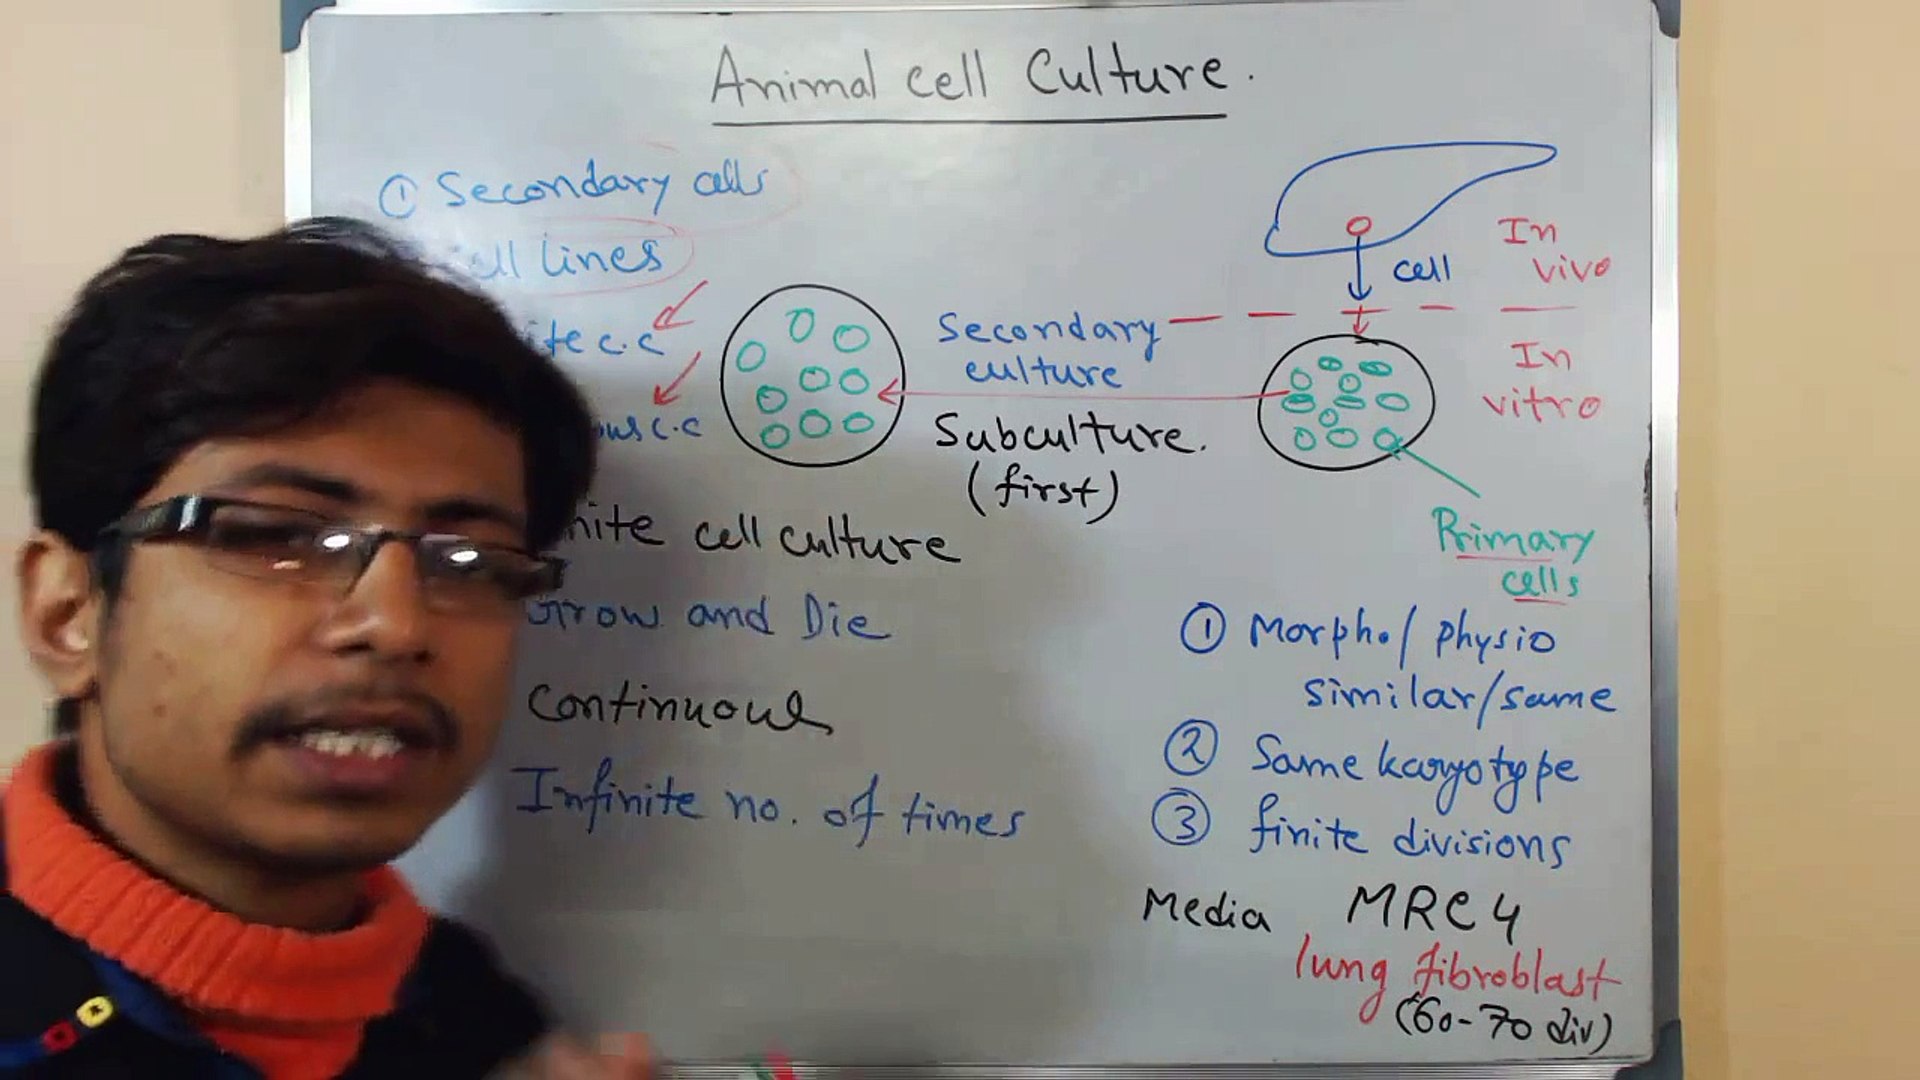 Animal cell Culture.
① Secondary cells
cell lines
ite c.c
ous c.c
Secondary
culture
Subculture.
(first)
cell
In
vivo
In
vitro
Primary
cells
nite cell culture
Grow and Die
continuous
Infinite no. of times
① Morpho/ physio
similar/same
② Same karyotype
③ finite divisions
Media MRC 4
lung fibroblast
(60-70 div)